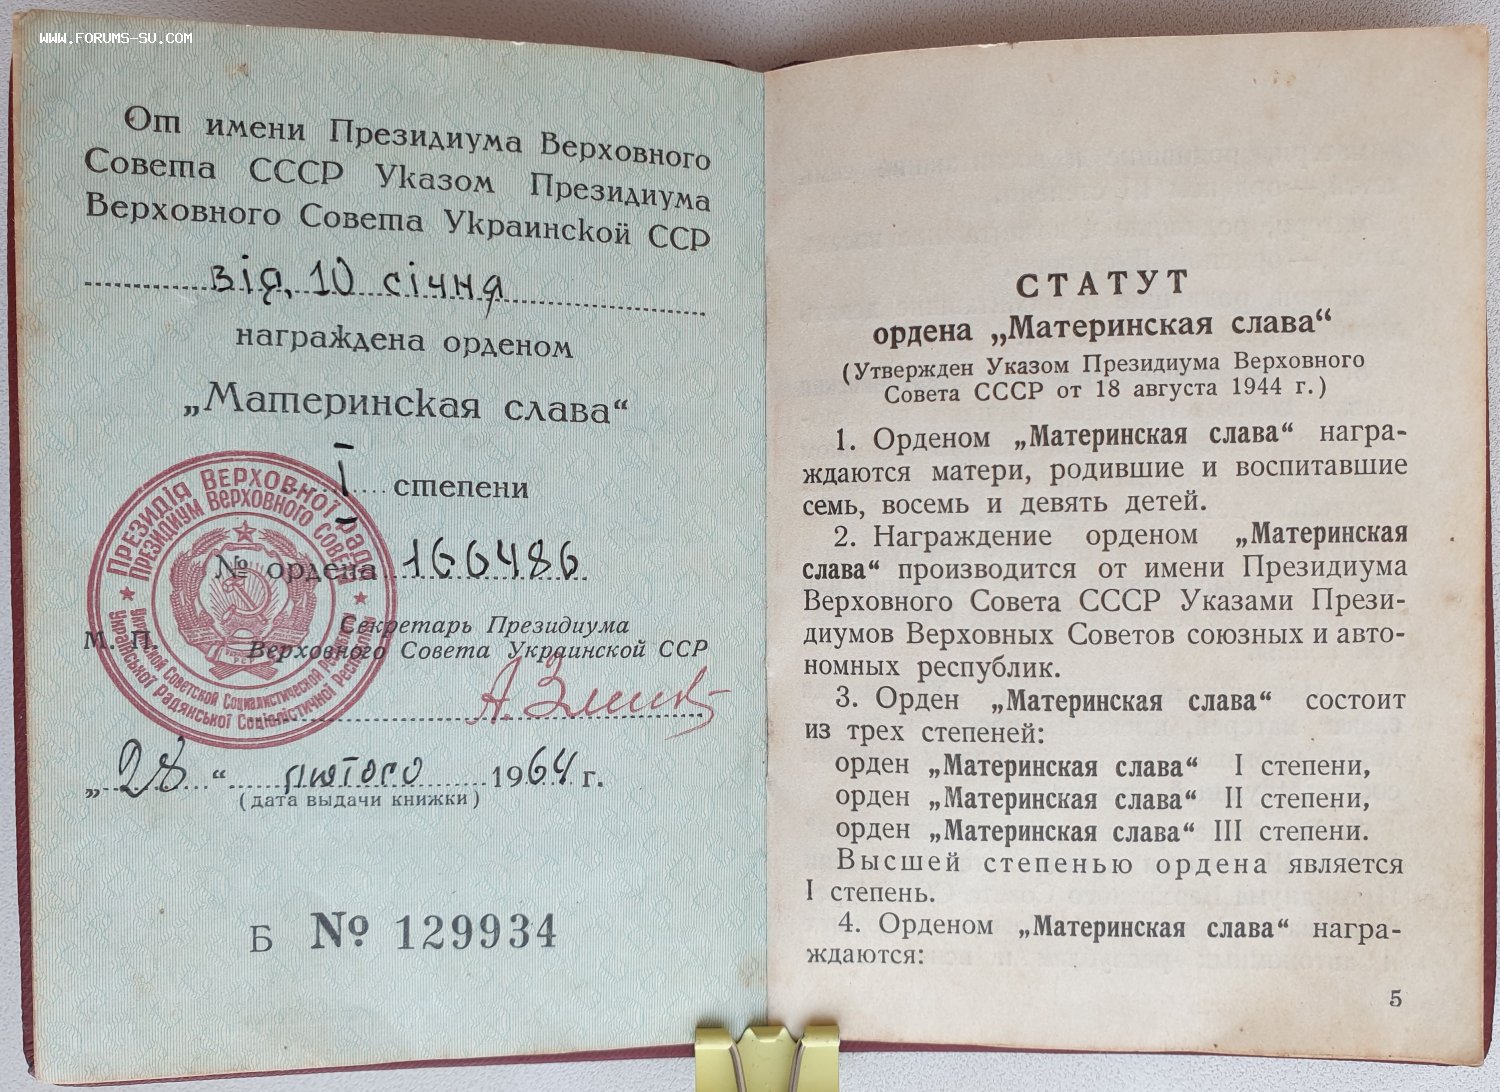 WWW.FORUMS-SU.COM
От имени Президиума Верховного
Совета СССР Указом Президиума
Верховного Совета Украинской ССР
від 10 січня
награждена орденом
„Материнская слава“
I степени
№ ордена 166486
Секретарь Президиума
М. П. Верховного Совета Украинской ССР
„28“ лютого 1964 г.
(дата выдачи книжки)
Б № 129934
Президія Верховної Ради
Української Радянської Соціалістичної Республіки
Президиум Верховного Совета
Украинской Советской Социалистической Республики
СТАТУТ
ордена „Материнская слава“
(Утвержден Указом Президиума Верховного
Совета СССР от 18 августа 1944 г.)
1. Орденом „Материнская слава“ награ-
ждаются матери, родившие и воспитавшие
семь, восемь и девять детей.
2. Награждение орденом „Материнская
слава“ производится от имени Президиума
Верховного Совета СССР Указами Прези-
диумов Верховных Советов союзных и авто-
номных республик.
3. Орден „Материнская слава“ состоит
из трех степеней:
орден „Материнская слава“ I степени,
орден „Материнская слава“ II степени,
орден „Материнская слава“ III степени.
Высшей степенью ордена является
I степень.
4. Орденом „Материнская слава“ награ-
ждаются:
5